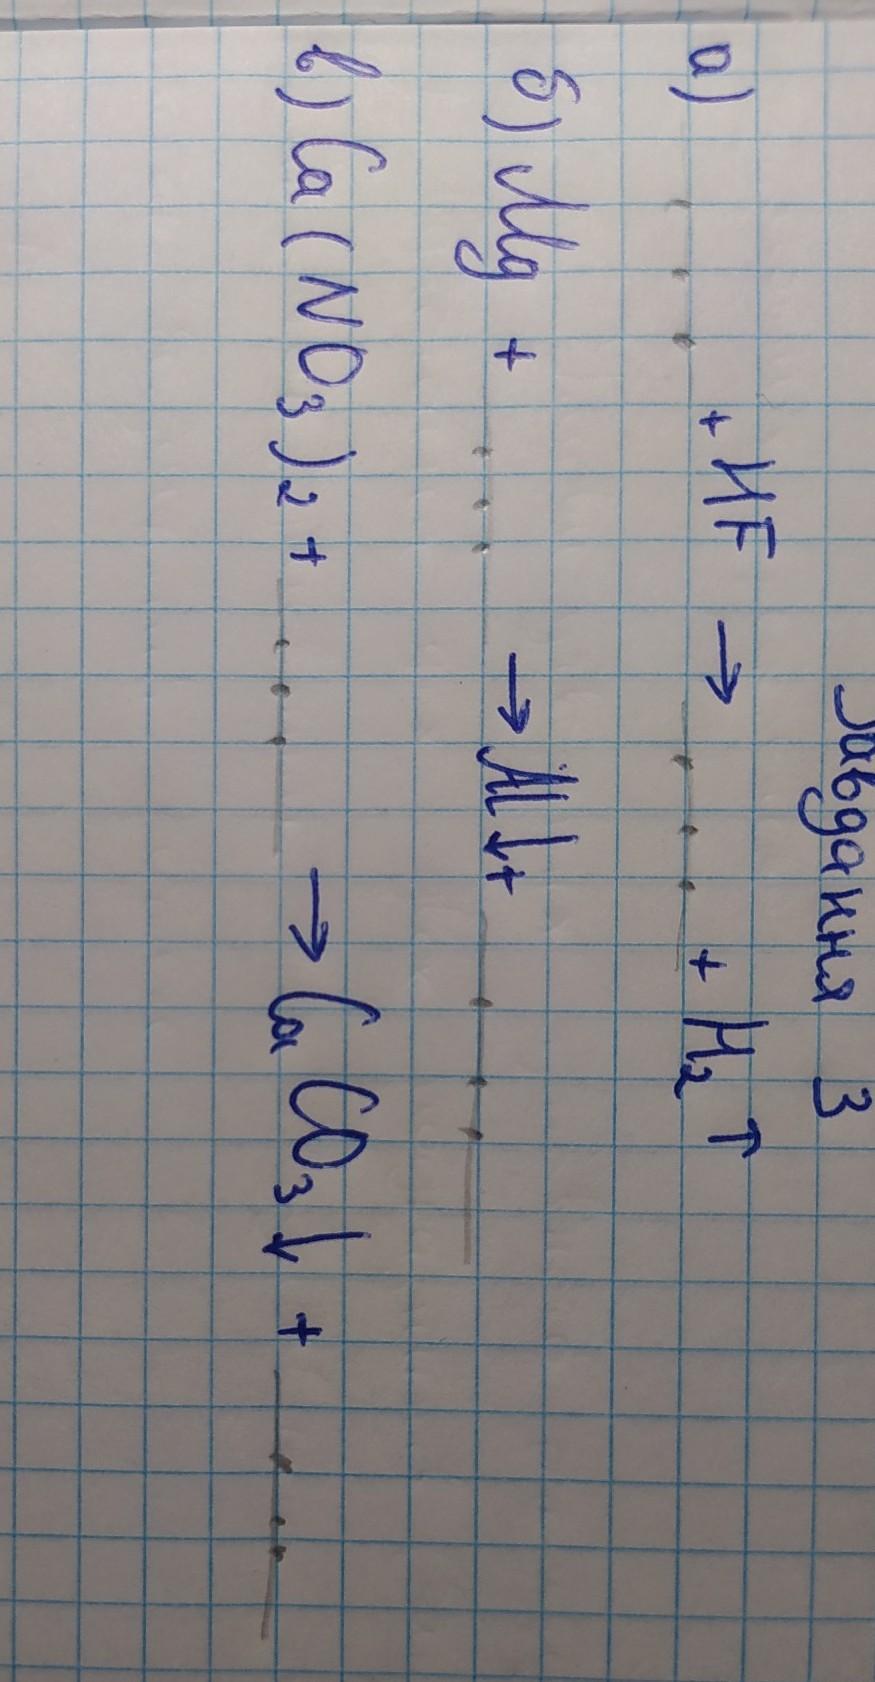 Завдання 3
а) ... + HF → ... + H₂↑
б) Mg + ... → Al↓ + ...
в) Ca(NO₃)₂ + ... → CaCO₃↓ + ...